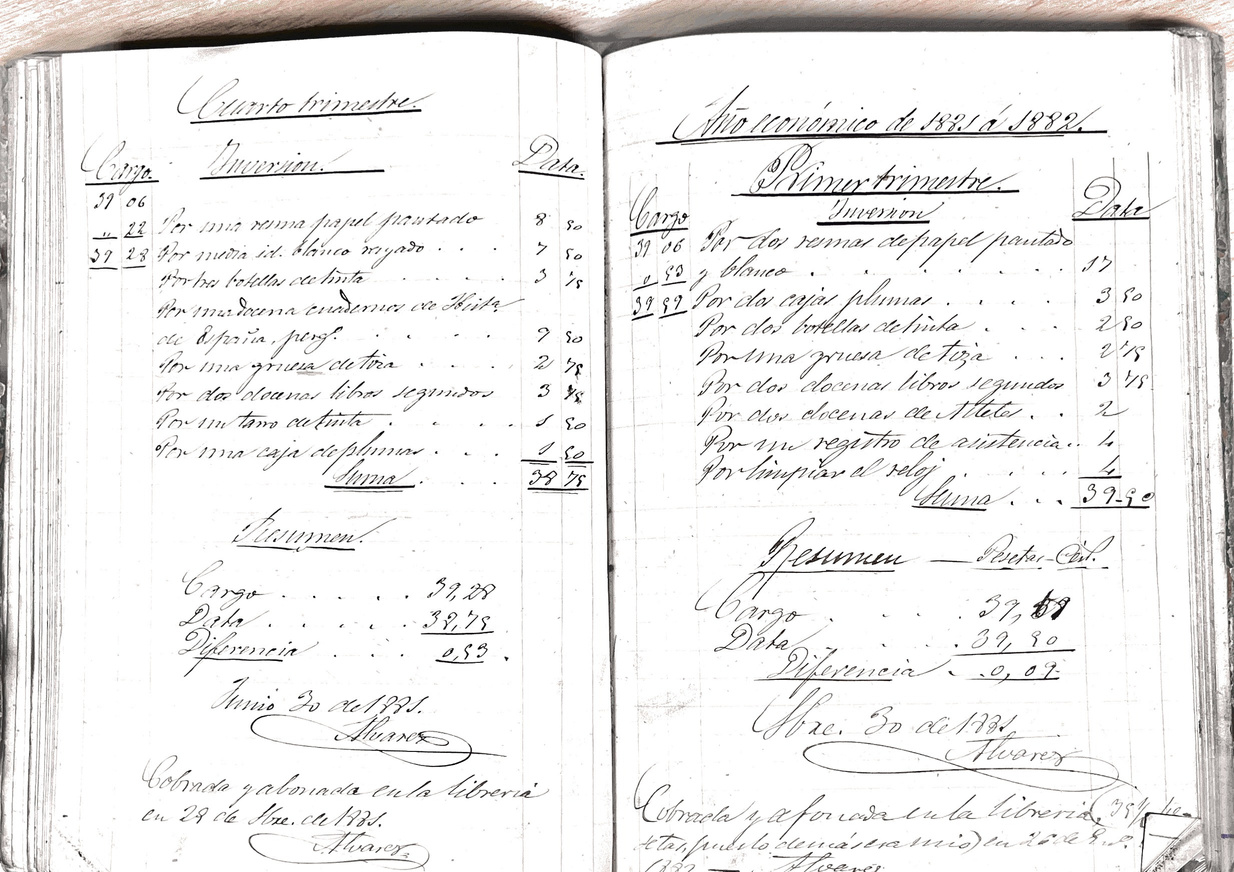 Cuarto trimestre.
Cargo. Inversion. Data.
39 06
„ 22 Por una resma papel pautado 8 50
39 28 Por media id. blanco rayado . . . 7 50
Por tres botellas de tinta . . . . 3 75
Por una docena cuadernos de Hista.
de España, perg.º . . . . 7 50
Por una gruesa de tiza . . . . 2 75
Por dos docenas libros segundos 3 75
Por un tarro de tinta . . . . 1 50
Por una caja de plumas . . . 1 50
Suma . . . 38 75
Resumen.
Cargo . . . . . 39,28
Data . . . . . 38,75
Diferencia . . . 0,53.
Junio 30 de 1881.
Alvarez
Cobrada y abonada en la libreria
en 28 de Sbre. de 1881.
Alvarez
Año económico de 1881 á 1882.
Primer trimestre.
Cargo Inversion Data
39 06 Por dos resmas de papel pautado
0 53 y blanco . . . . . . . 17
39 59 Por dos cajas plumas . . . . 3 50
Por dos botellas de tinta . . . 2 50
Por una gruesa de tiza . . . 2 75
Por dos docenas libros segundos 3 75
Por dos docenas de . . 2
Por un registro de asistencia . . 4
Por limpiar el reloj . . . . 4
Suma . . . 39-50
Resumen — Pesetas - Cént.
Cargo . . . 39,59
Data . . . . 39,50
Diferencia . 0,09.
Sbre. 30 de 1881.
Alvarez
Cobrada y abonada en la libreria (
setas, puesto demás era mio) en 26 de
1882 — Alvarez